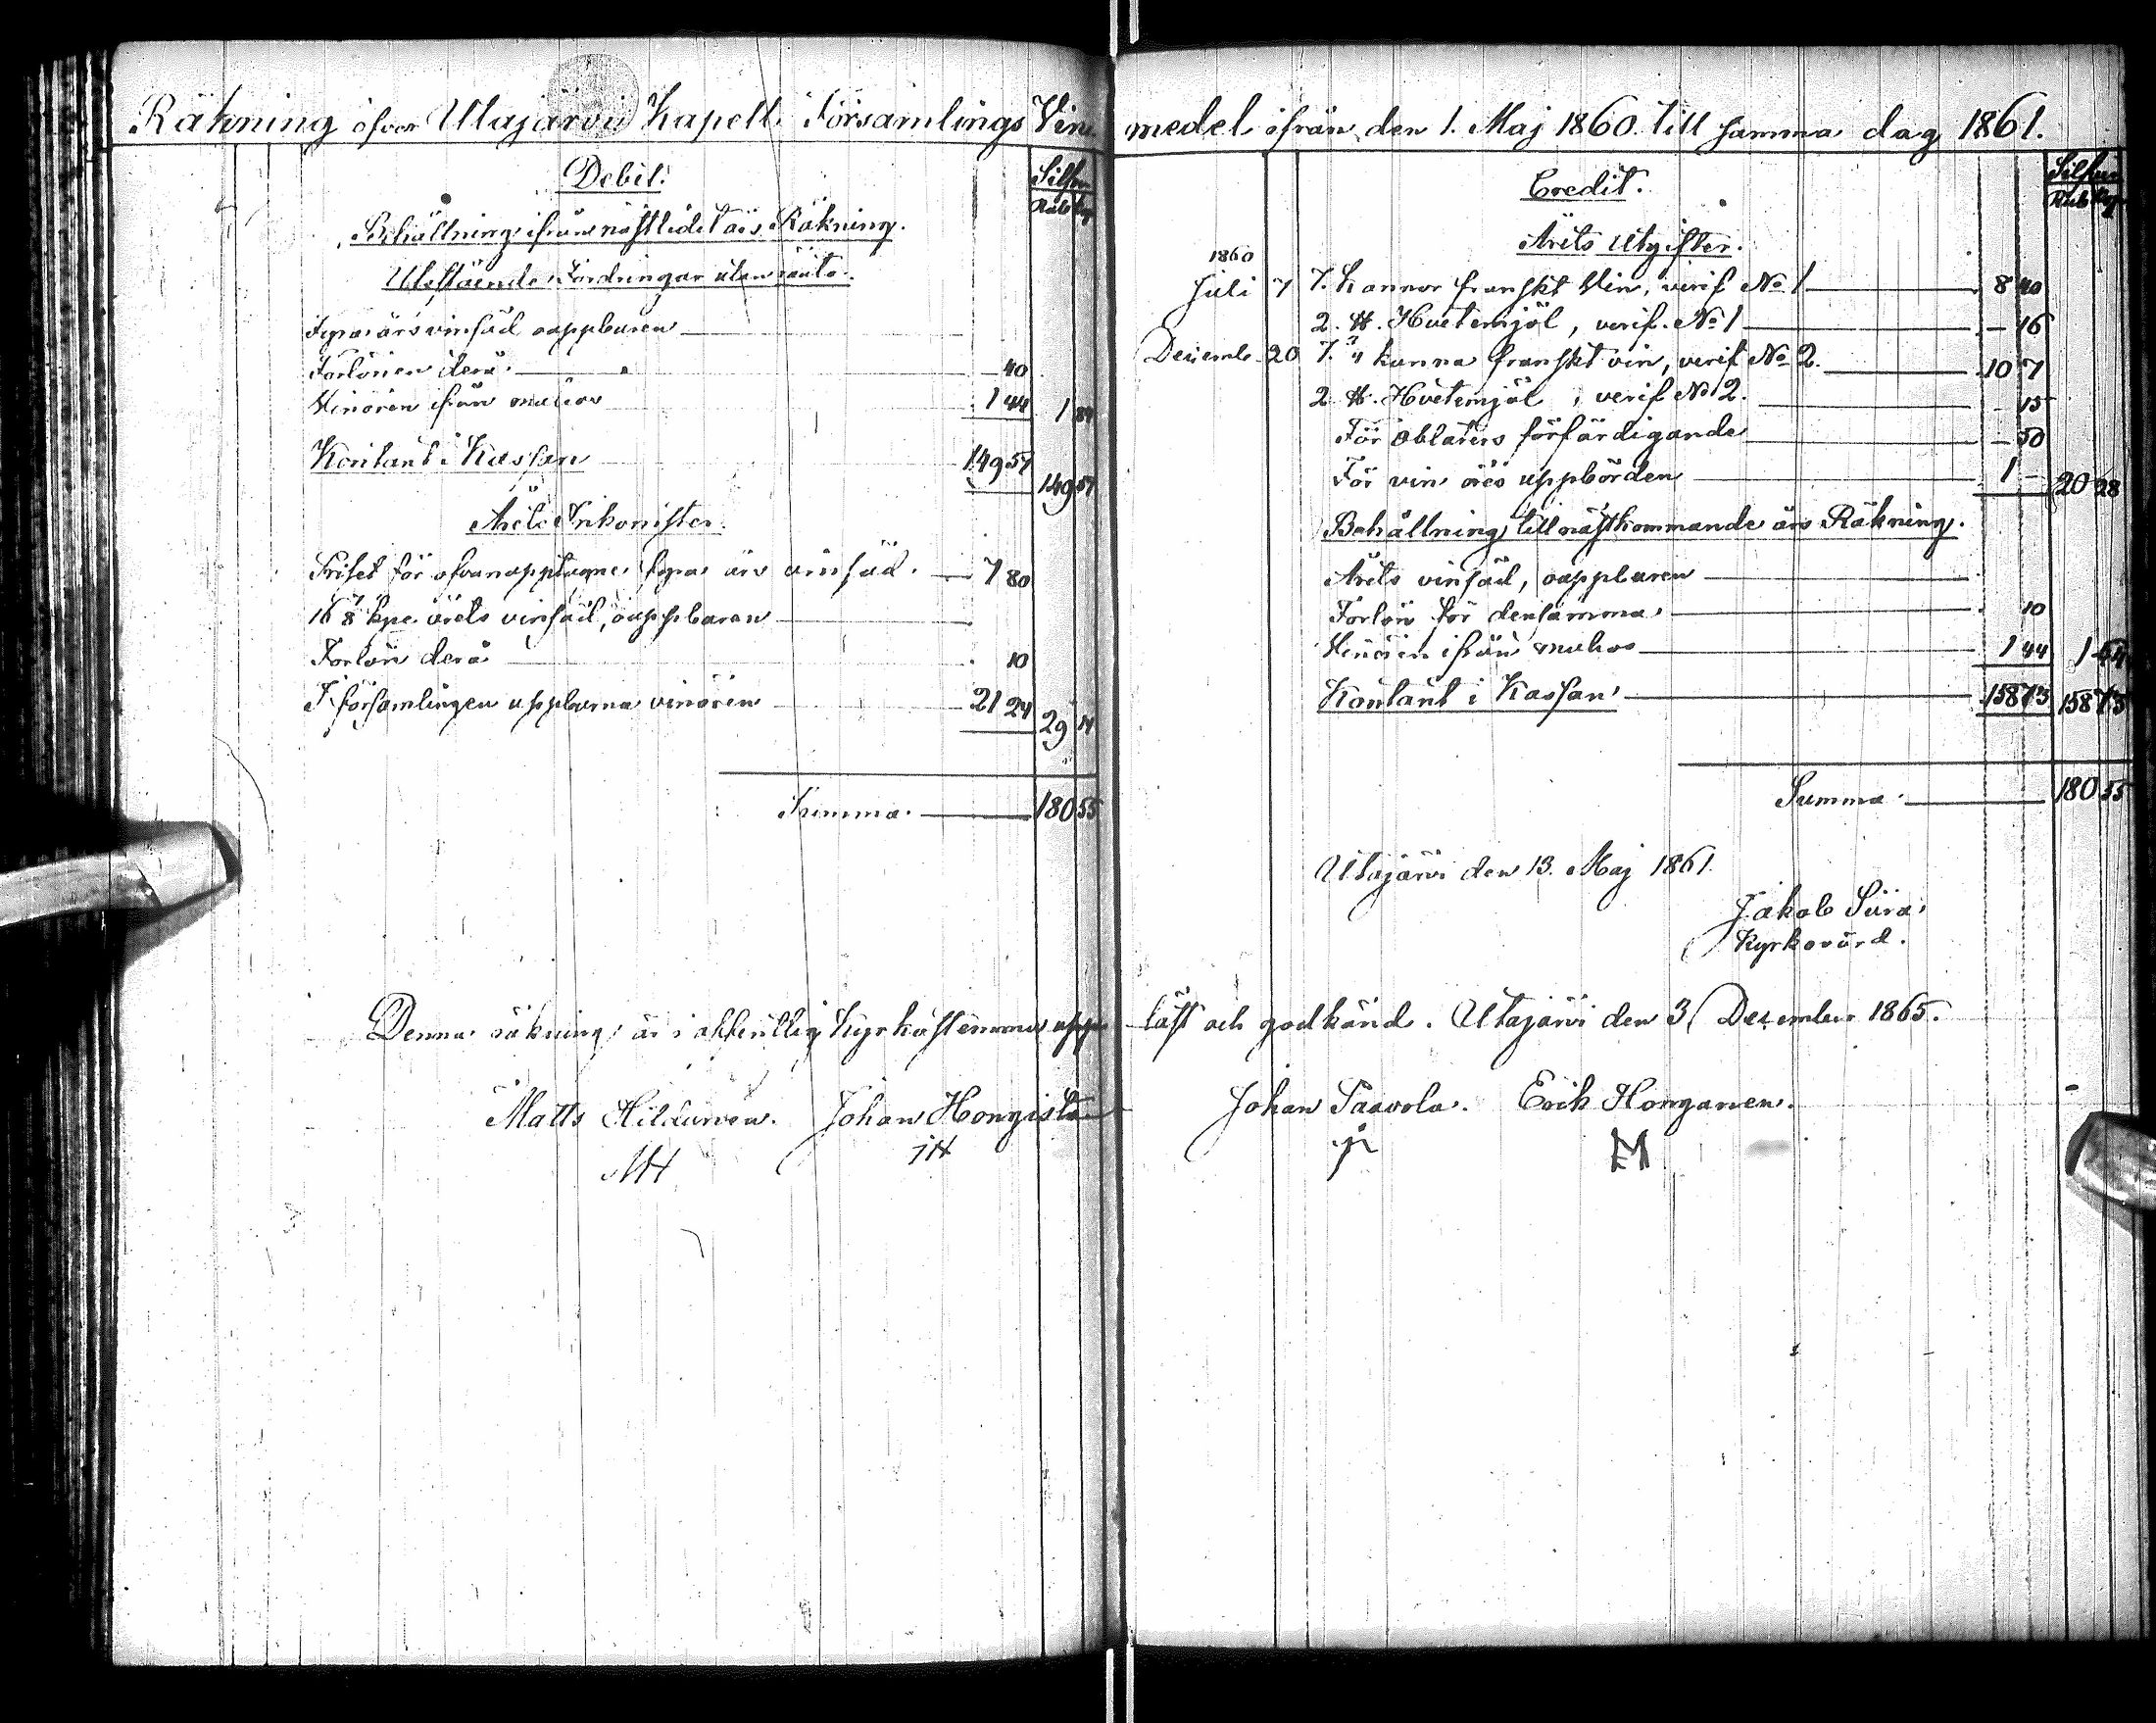 Räkning öfver Utajärvi Kapell Församlings Vin
Debit.
Silfver
Rub kop
Behållning ifrån nästlidet års Räkning.
Utestående Fordringar utan ränta.
Fyra års vinsäd ouppburen
Forlönen derå 40
Vinören ifrån Muhos 1 44 1 84
Kontant i Kassan 149 57 149 57
Årets Inkomster.
Priset för ofvanupptagne fyra års vinsäd. 7 80
kpr årets vinsäd, ouppburen
Forlön derå 10
I församlingen uppburna vinören 21 24 29 14
Summa. 180 55
medel ifrån den 1. Maj 1860 till samma dag 1861.
Credit.
Silfver
Rub kop
Årets Utgifter.
1860
Juli 7 7. Kannor franskt Vin, verif No 1 8 40
2. ℔. Hvetemjöl, verif. No 1 — 16
Decemb 20 7. kanna franskt vin, verif No 2. 10 7
2 ℔. Hvetemjöl, verif No 2. — 15
För oblaters förfärdigande — 50
För vin öres uppbörden 1 — 20 28
Behållning till nästkommande års Räkning.
Årets vinsäd, ouppburen
Forlön för densamma 10
Vinören ifrån Muhos 1 44 1 54
Kontant i Kassan 158 73 158 73
Summa. 180 55
Utajärvi den 13. Maj 1861.
Jakob Siira
Kyrkovärd.
Denna räkning är i offentlig Kyrkostämma upp läst och godkänd. Utajärvi den 31 December 1865.
Matts Hildunen. Johan Hongisto Johan Paavola. Erik Honganen.
MH JH